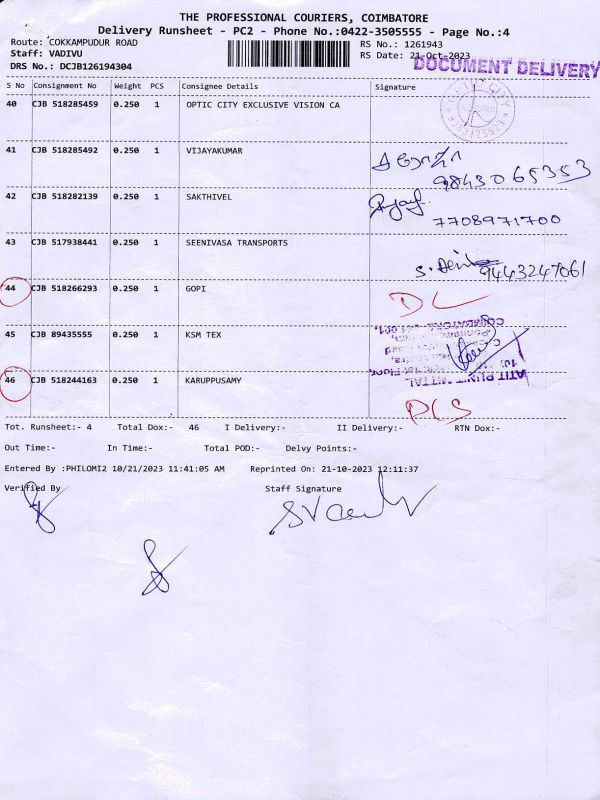 THE PROFESSIONAL COURIERS, COIMBATORE
Delivery Runsheet - PC2 - Phone No.:0422-3505555 - Page No.:4
Route: COKKAMPUDUR ROAD RS No.: 1261943
Staff: VADIVU RS Date: 21-Oct-2023
DRS No.: DCJB126194304 DOCUMENT DELIVERY
S No Consignment No Weight PCS Consignee Details Signature
40 CJB 518285459 0.250 1 OPTIC CITY EXCLUSIVE VISION CA
41 CJB 518285492 0.250 1 VIJAYAKUMAR
9843065353
42 CJB 518282139 0.250 1 SAKTHIVEL
7708971700
43 CJB 517938441 0.250 1 SEENIVASA TRANSPORTS
9443247061
44 CJB 518266293 0.250 1 GOPI DL
COIMBATORE
45 CJB 89435555 0.250 1 KSM TEX
Floor
46 CJB 518244163 0.250 1 KARUPPUSAMY
DCS
Tot. Runsheet:- 4 Total Dox:- 46 I Delivery:- II Delivery:- RTN Dox:-
Out Time:- In Time:- Total POD:- Delvy Points:-
Entered By :PHILOMI2 10/21/2023 11:41:05 AM Reprinted On: 21-10-2023 12:11:37
Verified By Staff Signature